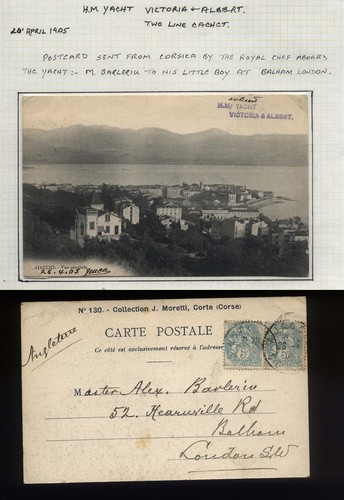 H.M YACHT VICTORIA & ALBERT.
TWO LINE CACHET.
20 APRIL 1905
POSTCARD SENT FROM CORSICA BY THE ROYAL CHEF ABOARD
THE YACHT :- M. BARLERIU TO HIS LITTLE BOY AT BALHAM LONDON.
H.M. YACHT
VICTORIA & ALBERT.
AJACCIO. - Vue générale
26.4.05
N° 130. - Collection J. Moretti, Corte (Corse)
CARTE POSTALE
Ce côté est exclusivement réservé à l'adresse
Angleterre
Master Alex. Barleriu
52. Hearnville Rd
Balham
London S.W